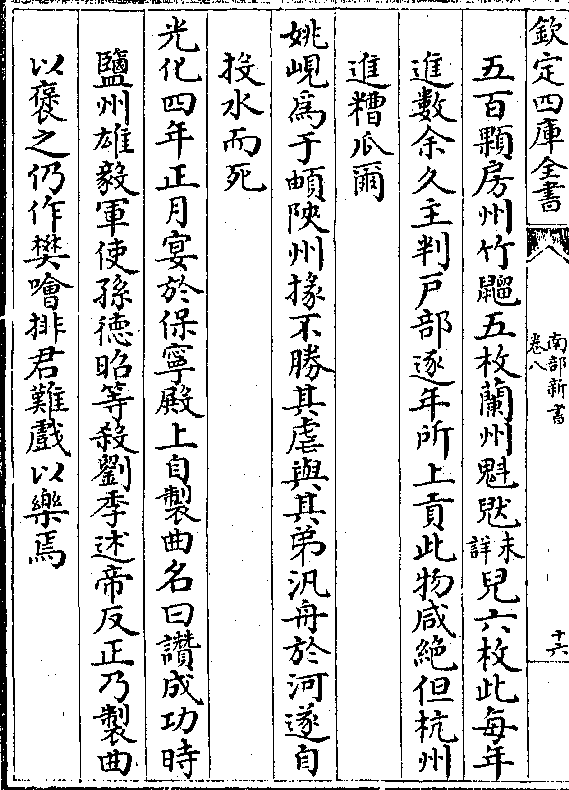 欽定四庫全書
南部新書
卷八
十六
五百顆房州竹䶉五枚蘭州魁㞤未詳兒六枚此每年
進數余久主判戸部逐年所上貢此物咸絶但杭州
進糟瓜爾
姚峴爲于頔陜州掾不勝其虐與其弟汎舟於河遂自
投水而死
光化四年正月宴於保寧殿上自製曲名曰讚成功時
鹽州雄毅軍使孫徳昭等殺劉季述帝反正乃製曲
以褒之仍作樊噲排君難戲以樂焉